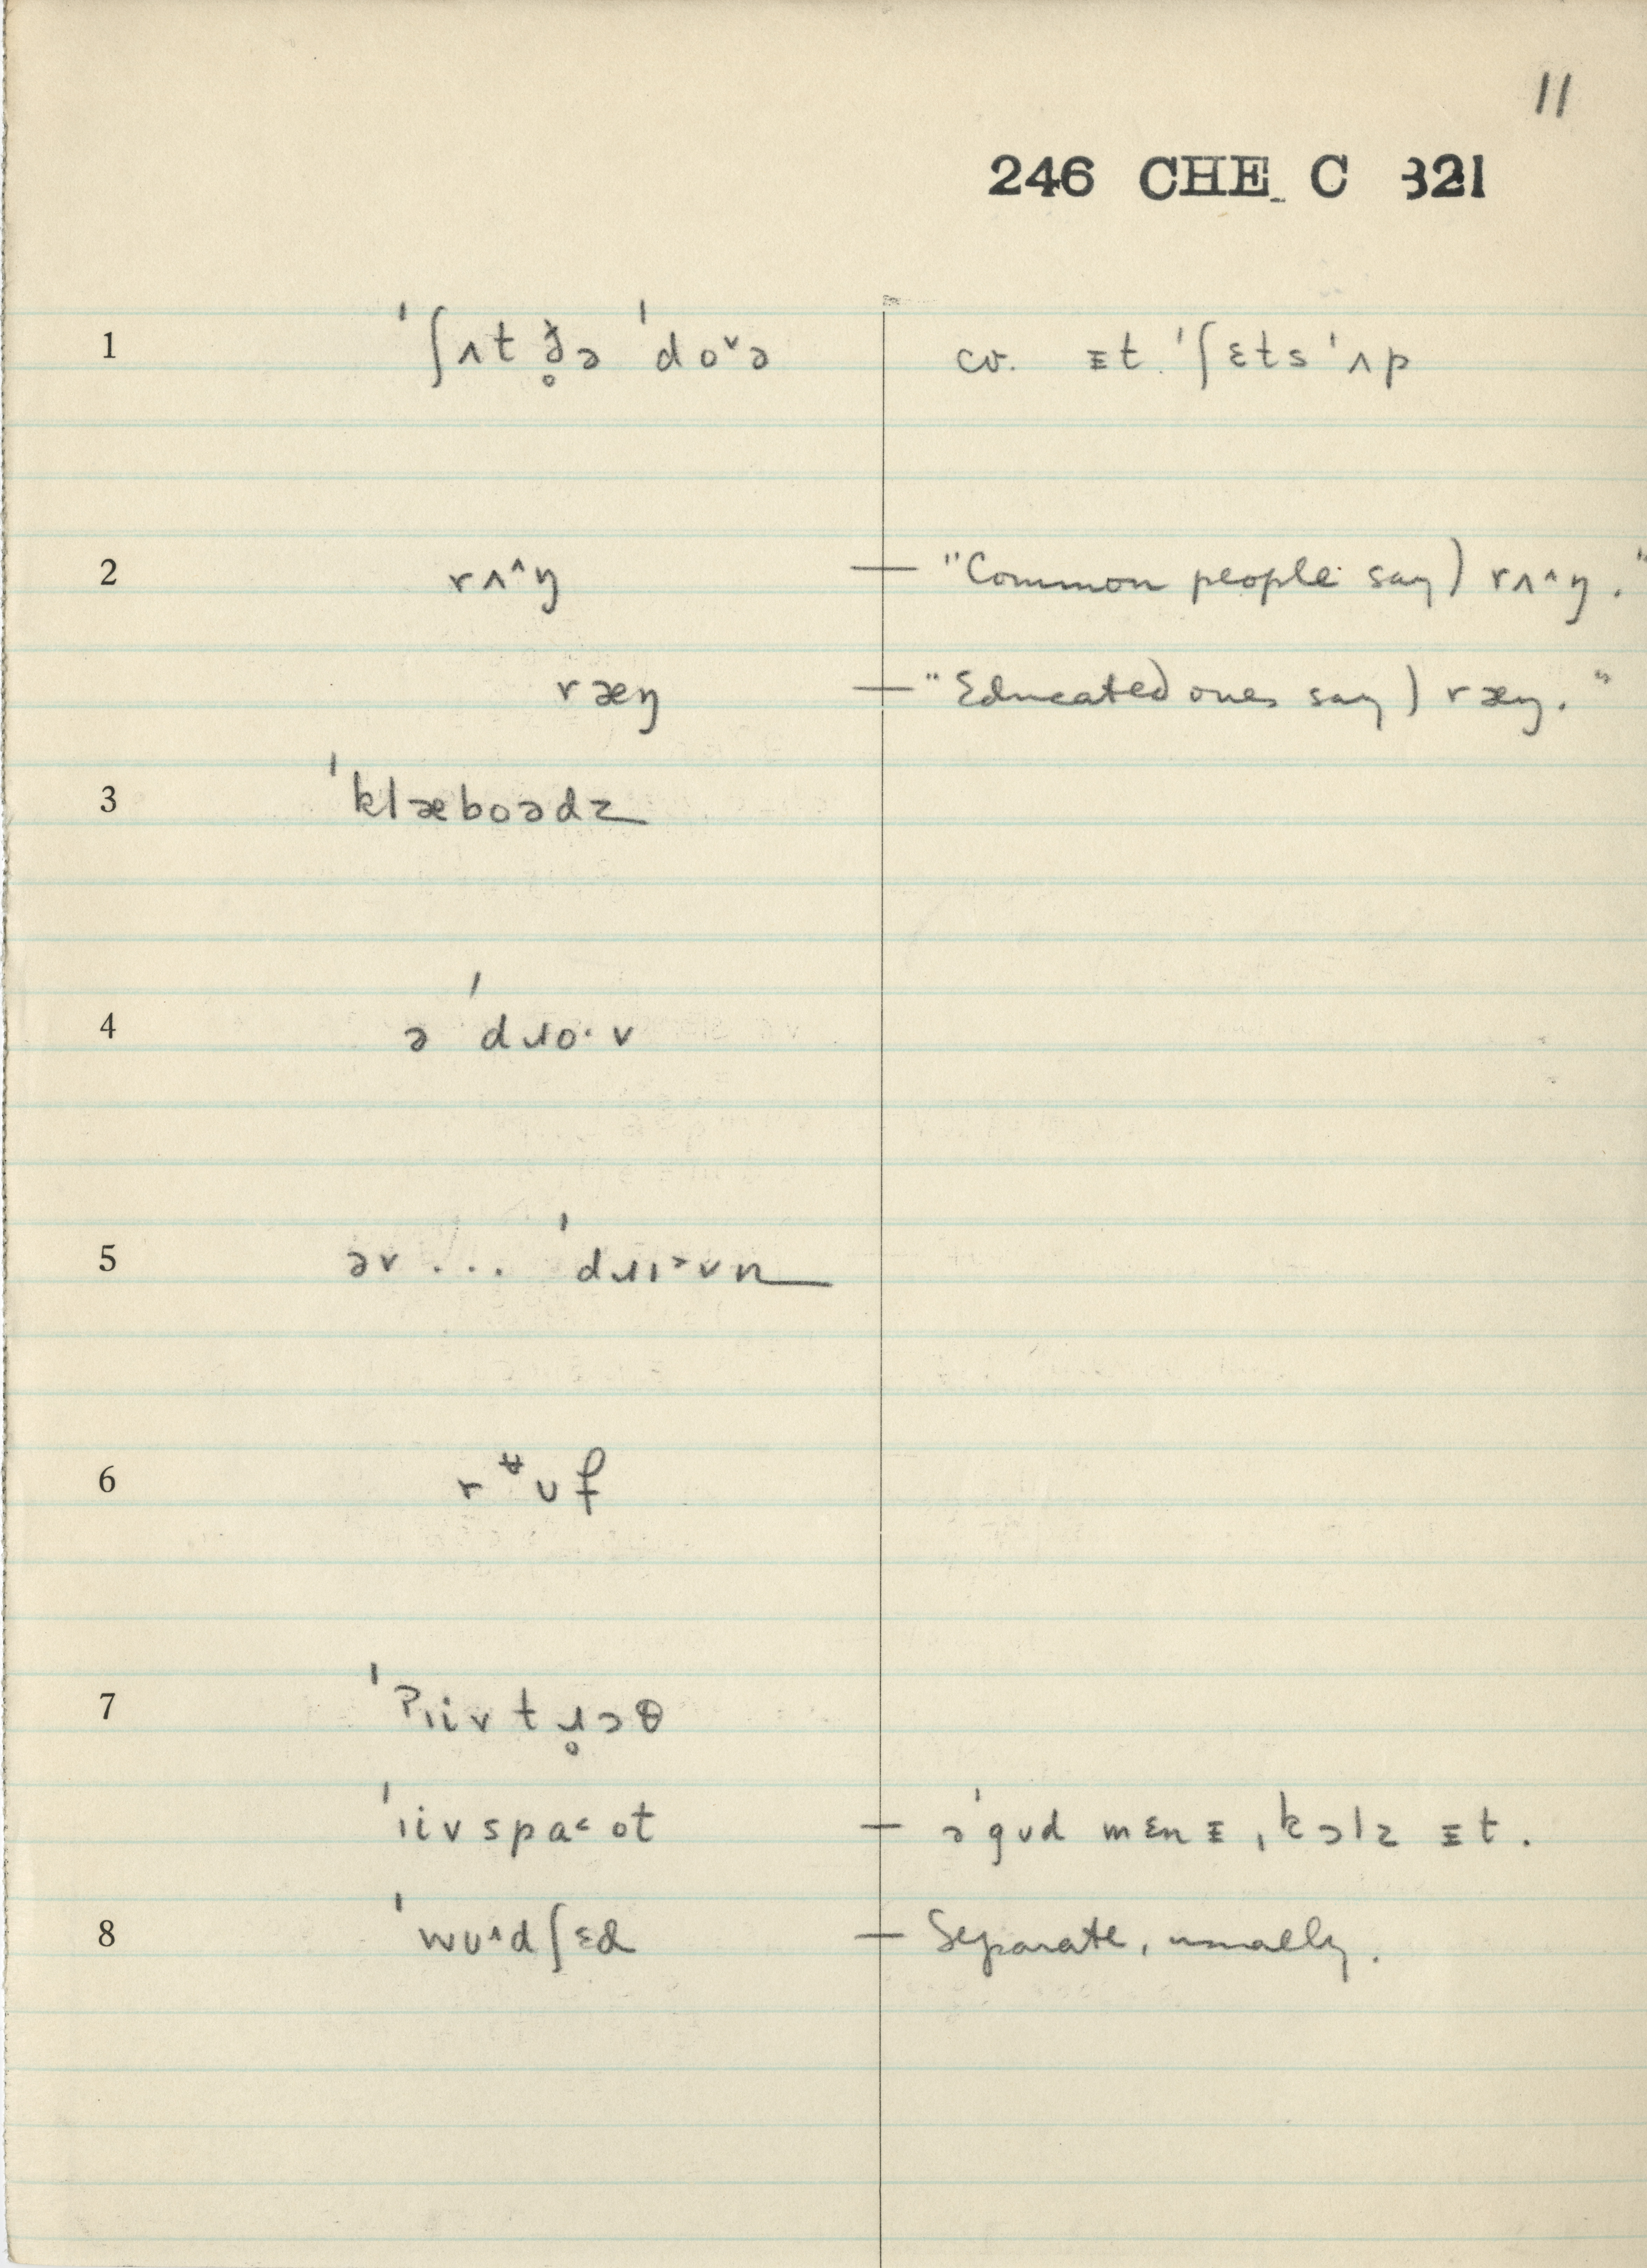 11
246 CHE C 321
1 ˈʃʌt ð̥ə ˈdo˅ə cv. ᴈt ˈʃɛts ˈʌp
2 rʌ^ŋ — "Common people say) rʌ^ŋ."
ræŋ — "Educated ones say) ræŋ."
3 ˈklæboədz
4 ə ˈdɹo·v
5 əv ... ˈdɹɪ˃vn
6 rʊf
7 ˈʔɪivtɹ̥ɔθ
ˈɪivspa˂ot — əˈgʊd mɛnᴈ, kɔlz ᴈt.
8 ˈwʊ^dʃɛd — Separate, usually.